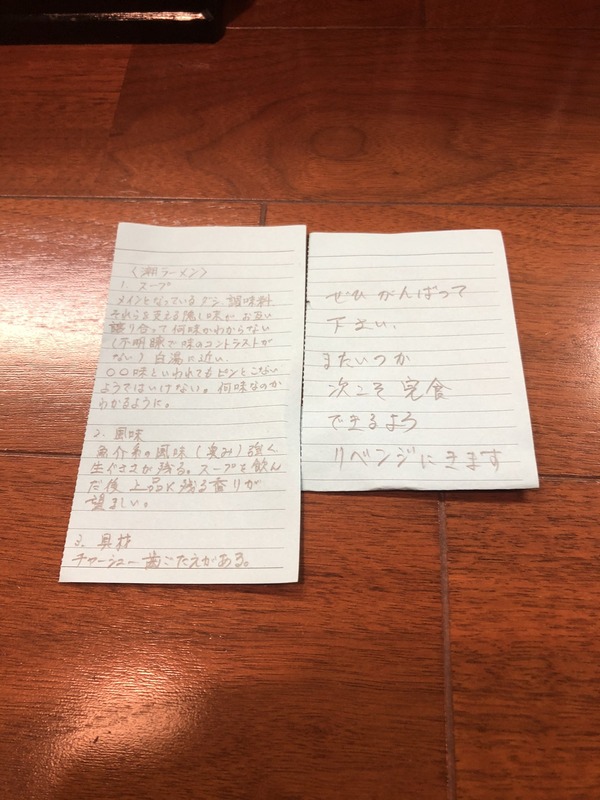 〈潮ラーメン〉
1. スープ
メインとなっているダシ 調味料
それらを支える隠し味が お互い
譲り合って何味かわからない
(不明瞭で味のコントラストが
ない) 白湯に近い.
〇〇味といわれてもピンとこない
ようではいけない。何味なのか
わかるように。
2. 風味
魚介系の風味 (臭み) 強く
生ぐささが残る。スープを飲ん
だ後 上品に残る香りが
望ましい。
3. 具材
チャーシュー 歯ごたえがある。
ぜひ がんばって
下さい.
またいつか
次こそ 完食
できるよう
リベンジにきます